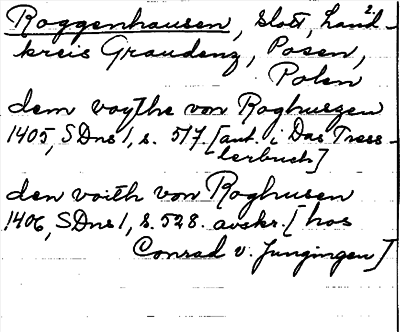 Roggenhausen, slott, Land-
kreis Graudenz, Posen,
Polen
dem voythe von Roghuszen
1405, SDns 1, s. 517. [ant. i Das Tress-
lerbuch]
den voith von Roghusen
1406, SDns 1, s. 528. avskr. [hos
Conrad v. Jungingen]